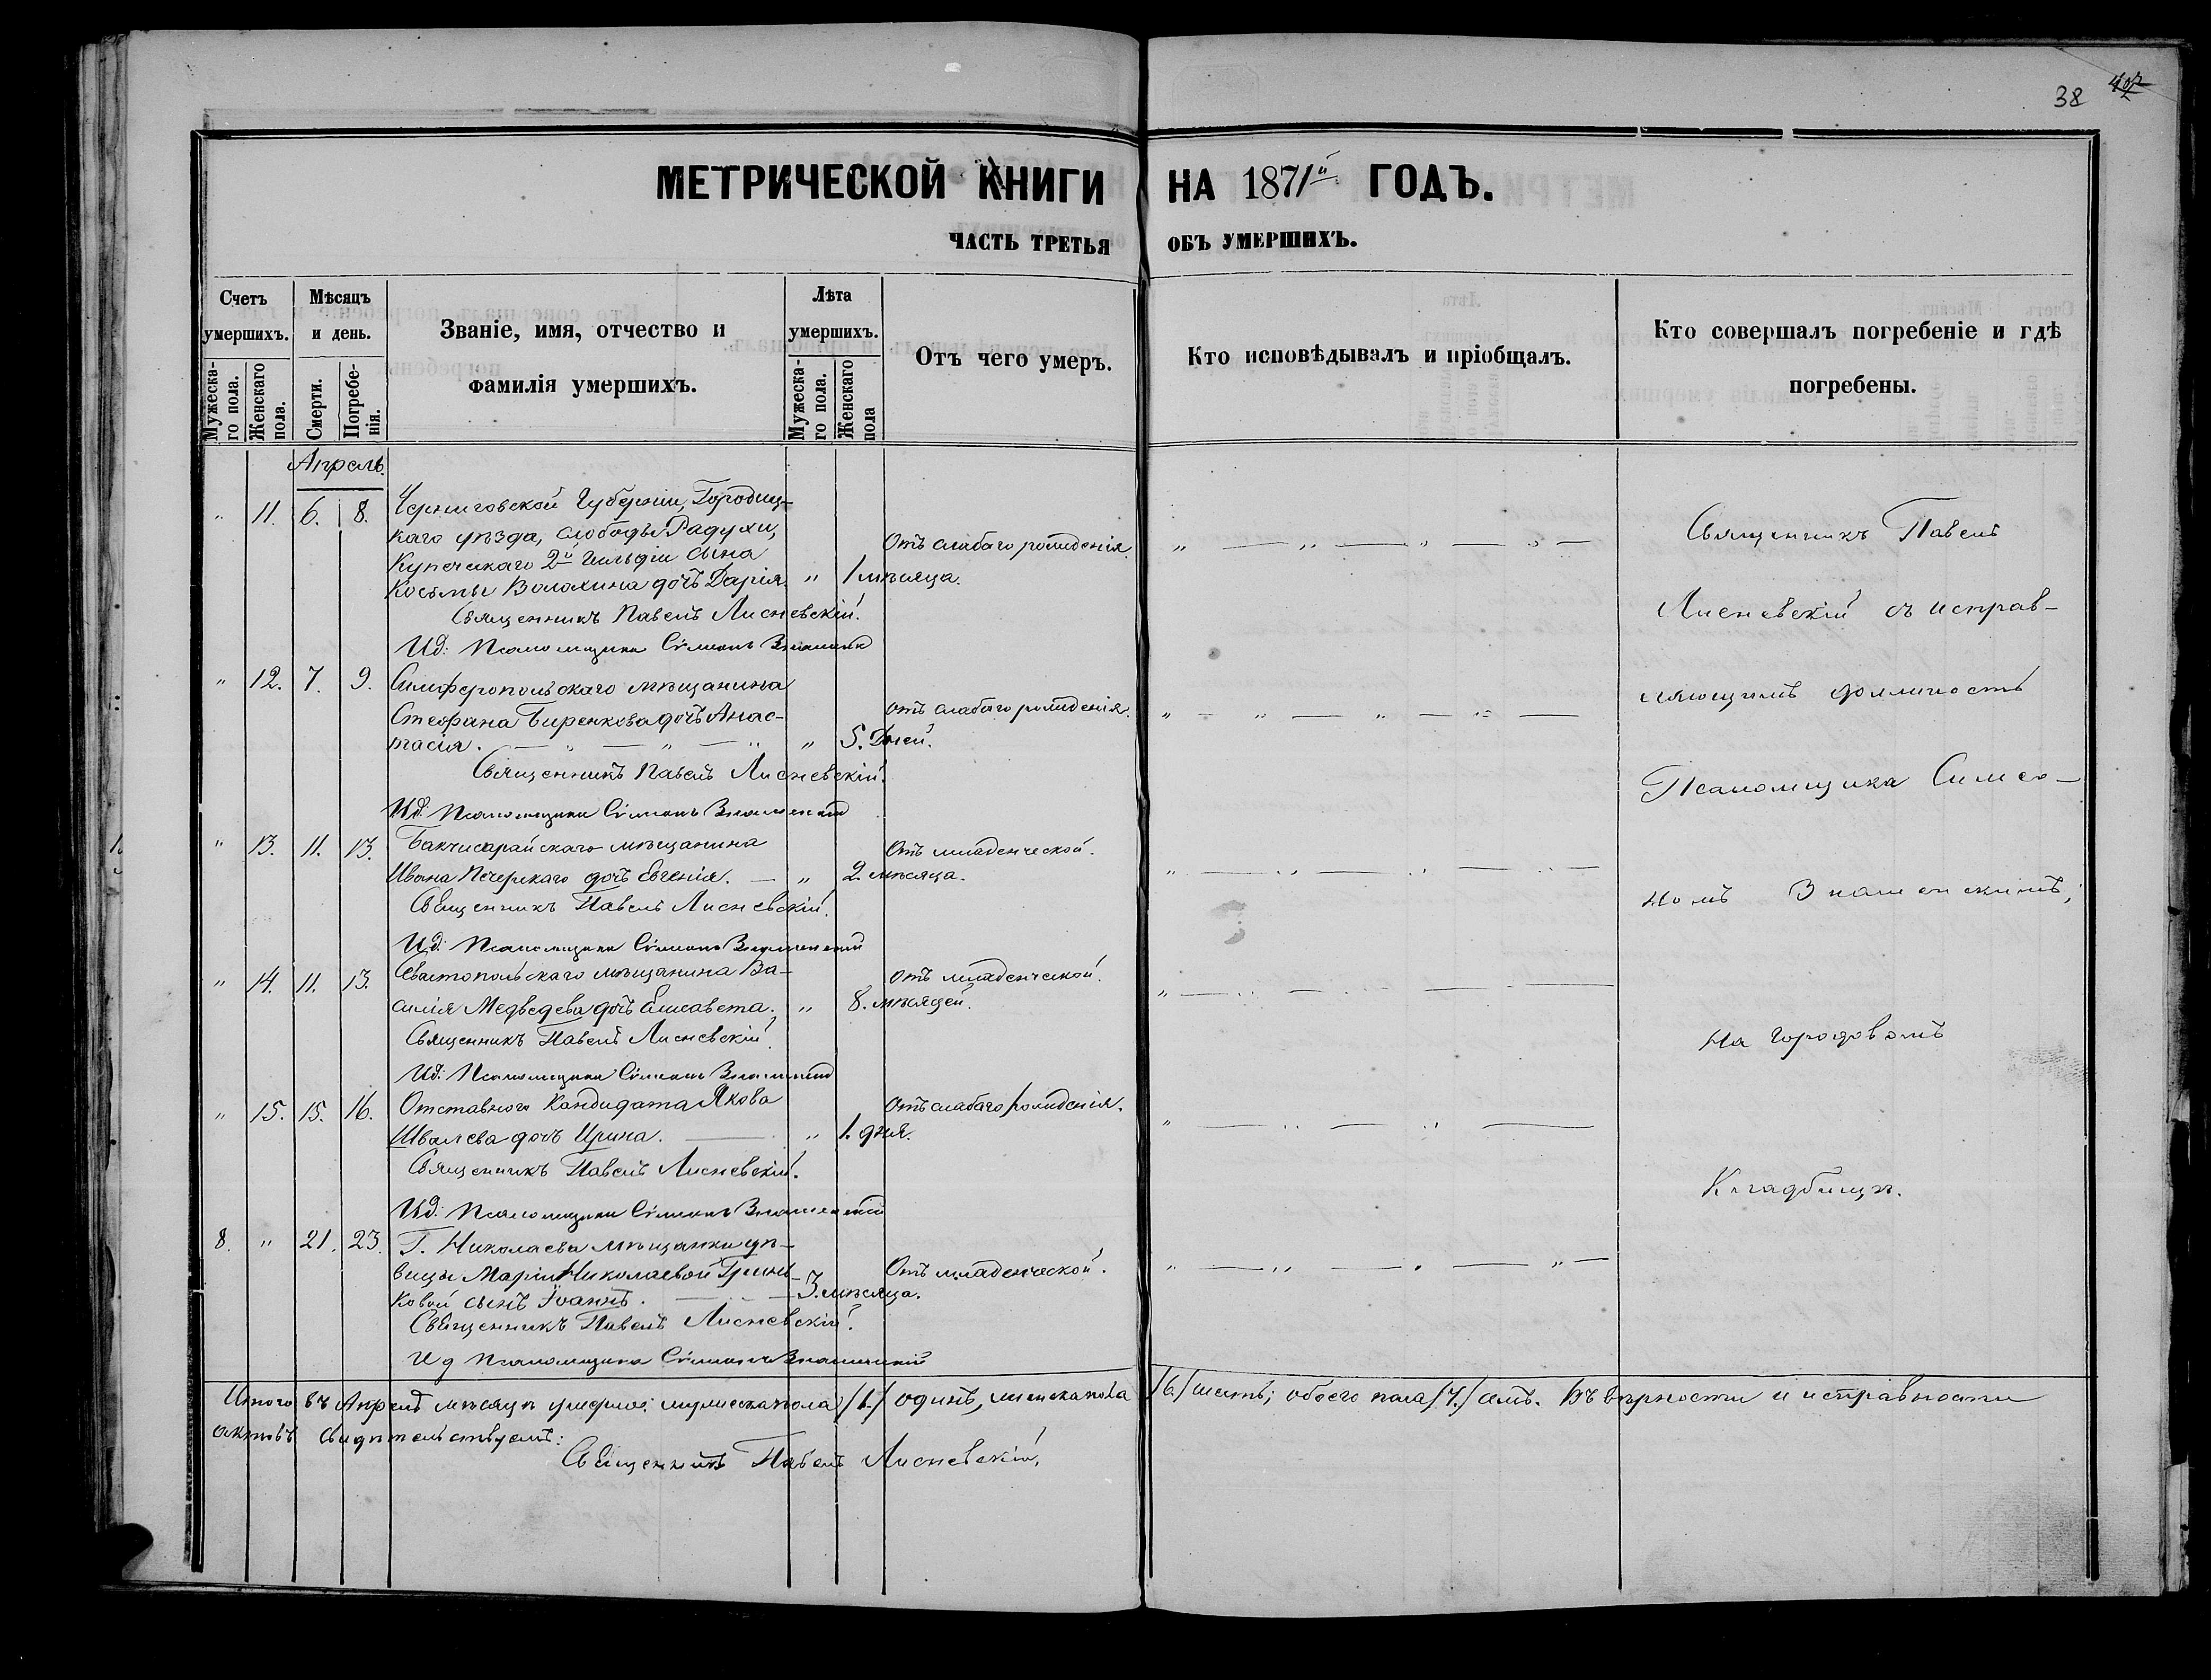 38 407
МЕТРИЧЕСКОЙ КНИГИ НА 1871й ГОДЪ.
ЧАСТЬ ТРЕТЬЯ ОБЪ УМЕРШИХЪ.
Счетъ умершихъ.
Мужеска-го пола.
Женскаго пола.
Мѣсяцъ и день.
Смерти.
Погребе-нія.
Званіе, имя, отчество и фамилія умершихъ.
Лѣта умершихъ.
Мужеска-го пола.
Женскаго пола
Отъ чего умеръ.
Кто исповѣдывалъ и пріобщалъ.
Кто совершалъ погребеніе и гдѣ погребены.
Апрель.
" 11. 6. 8. Черниговской Губерніи, Городниц-
каго уѣзда, слободы Радухи,
Купеческаго 2й Гильдіи сына
Косьмы Волохина дочь Дарія. " 1 мѣсяца. Отъ слабаго рожденія.
Священникъ Павелъ Лисневскій.
Ид: Псаломщика Сѵмеонъ Знаменскій
" 12. 7. 9. Симферопольскаго мѣщанина
Стефана Биренкова дочь Анас-
тасія. " 5. Дней. Отъ слабаго рожденія.
Священникъ Павелъ Лисневскій.
Ид: Псаломщика Сѵмеонъ Знаменскій
" 13. 11. 13. Бакчисарайскаго мѣщанина
Ивана Печерскаго дочь Евгенія. " 2 мѣсяца. Отъ младенческой.
Священникъ Павелъ Лисневскій.
Ид: Псаломщика Сѵмеонъ Знаменскій
" 14. 11. 13. Севастопольскаго мѣщанина Ва-
силія Медведева дочь Елисавета. " 8. мѣсяцей. Отъ младенческой.
Священникъ Павелъ Лисневскій.
Ид: Псаломщика Сѵмеонъ Знаменскій
" 15. 15. 16. Отставного Кандидата Якова
Швалева дочь Ирина. " 1. дня. Отъ слабаго рожденія.
Священникъ Павелъ Лисневскій.
Ид: Псаломщика Сѵмеонъ Знаменскій
8. " 21. 23. Г. Николаева мѣщанки дѣ-
вицы Маріи Николаевой Гринь-
ковой сынъ Іоаннъ. 3. мѣсяца. Отъ младенческой.
Священникъ Павелъ Лисневскій.
Ид Псаломщика Сѵмеонъ Знаменскій
Священникъ Павелъ
Лисневскій съ исправ-
ляющимъ должность
Псаломщика Симео-
номъ Знаменскимъ,
на Городовомъ
Кладбищѣ.
Итого въ Апрелѣ мѣсяцѣ умерло: мужеска пола /1./ одинъ, женска пола /6./ шесть; обоего пола /7./ семь. Въ вѣрности и исправности
актовъ свидѣтельствуемъ:
Священникъ Павелъ Лисневскій.